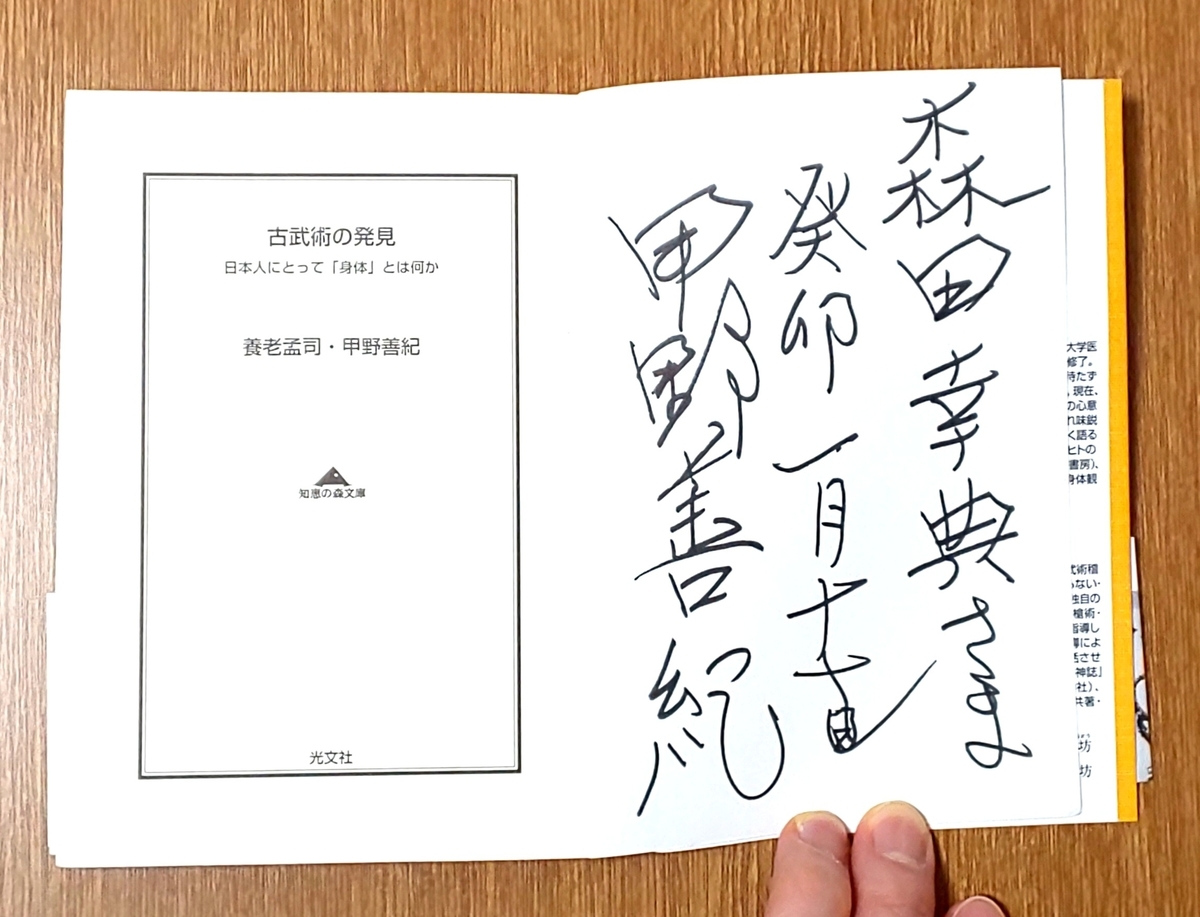 古武術の発見
日本人にとって「身体」とは何か
養老孟司・甲野善紀
知恵の森文庫
光文社
森田幸典さま
癸卯 一月
甲野善紀
大学医
修了。
持たず
現在、
の心意
れ味鋭
く語る
ヒトの
書房)、
身体観
武術稽
らない・
独自の
槍術・
指導し
導によ
活させ
神誌」
社)、
共著・
坊
坊